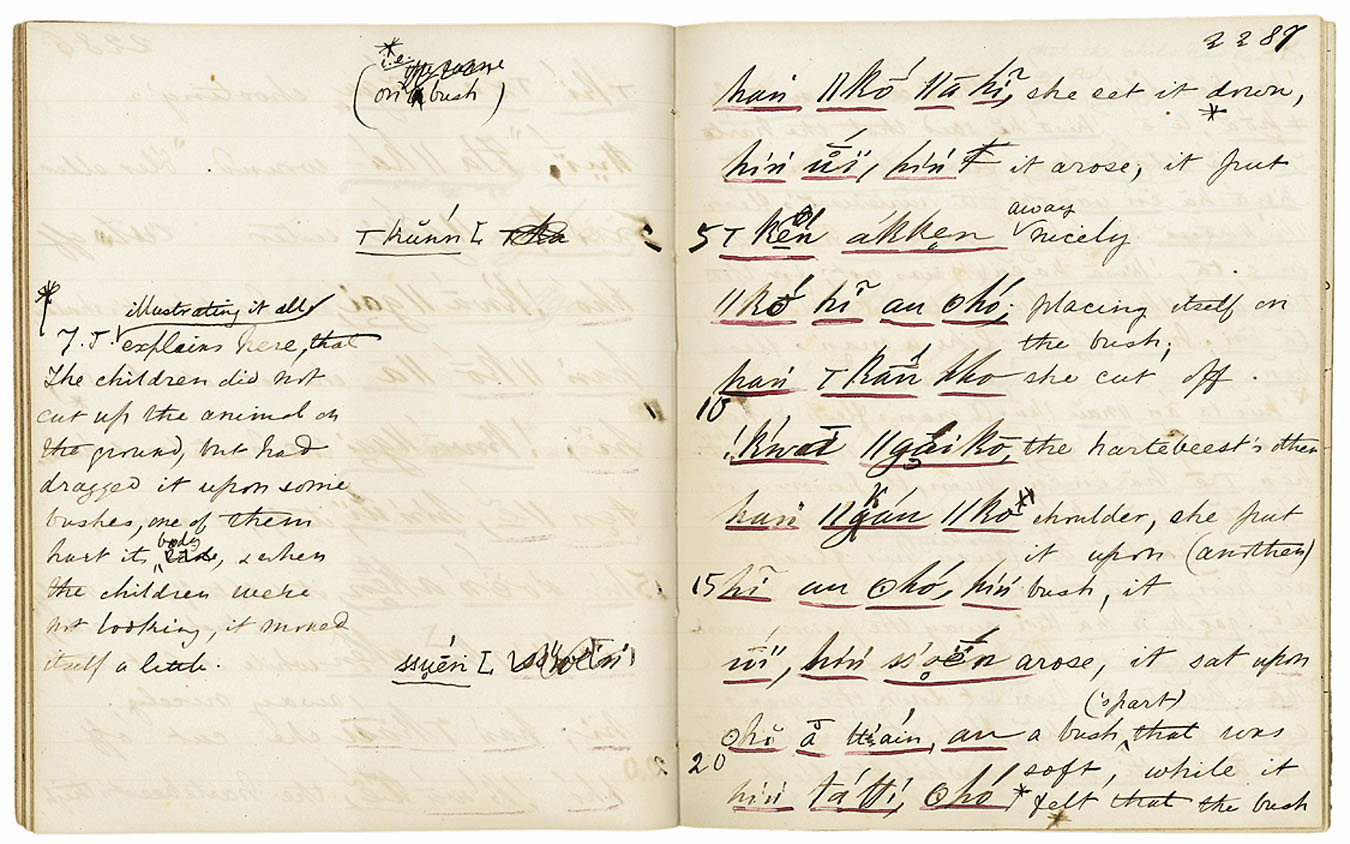 *
i.e.
(on bush)
⊤ kŭńn [
*
illustrating it all
J. T. explains here, that
the children did not
cut up the animal on
the ground, but had
dragged it upon some
bushes, one of them
hurt its body, & when
the children were
not looking, it moved
itself a little.
ssuę́n [
2287
haṅ ǁkó ǁā hĩ, she set it down,
*
hiṅ it arose, it put
5 ākken away
nicely
ǁkó hĩ au ʘhó; placing itself on
the bush;
haṅ kho she cut off
10
ǁgaikō, the hartebeest's other
haṅ ǁko * shoulder, she put
it upon (another)
15 hĩ au ʘhó, hiṅ bush, it
hiṅ arose, it sat upon
('s part)
ʘhŏ ă au a bush that was
20
soft, while it
hiṅ tátti, ʘhó * felt that the bush
*